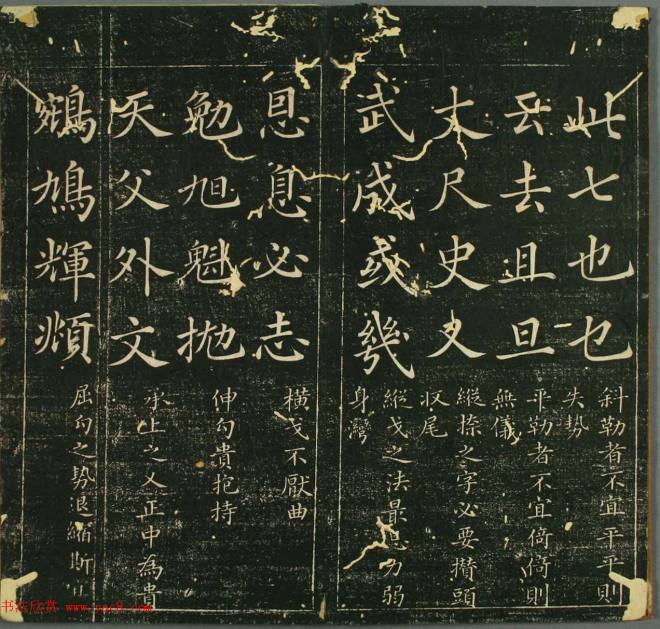 此七也乜
斜勒者不宜平平則
失勢
云去且旦
平勒者不宜倚倚則
無儀
丈尺史又
縱捺之字必要攢頭
収尾
武成或幾
縱戈之法最忌力弱
身灣
恩息必志
橫戈不厭曲
勉旭魁抛
伸勾貴抱持
天父外文
承上之乂正中為貴
鵷鳩輝頫
屈勾之勢退縮斯宜
书法欣赏 www.yac8.com